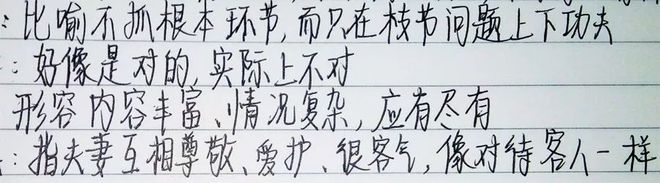 ：比喻不抓根本环节，而只在枝节问题上下功夫
：好像是对的，实际上不对
形容内容丰富、情况复杂，应有尽有
：指夫妻互相尊敬、爱护、很客气，像对待客人一样